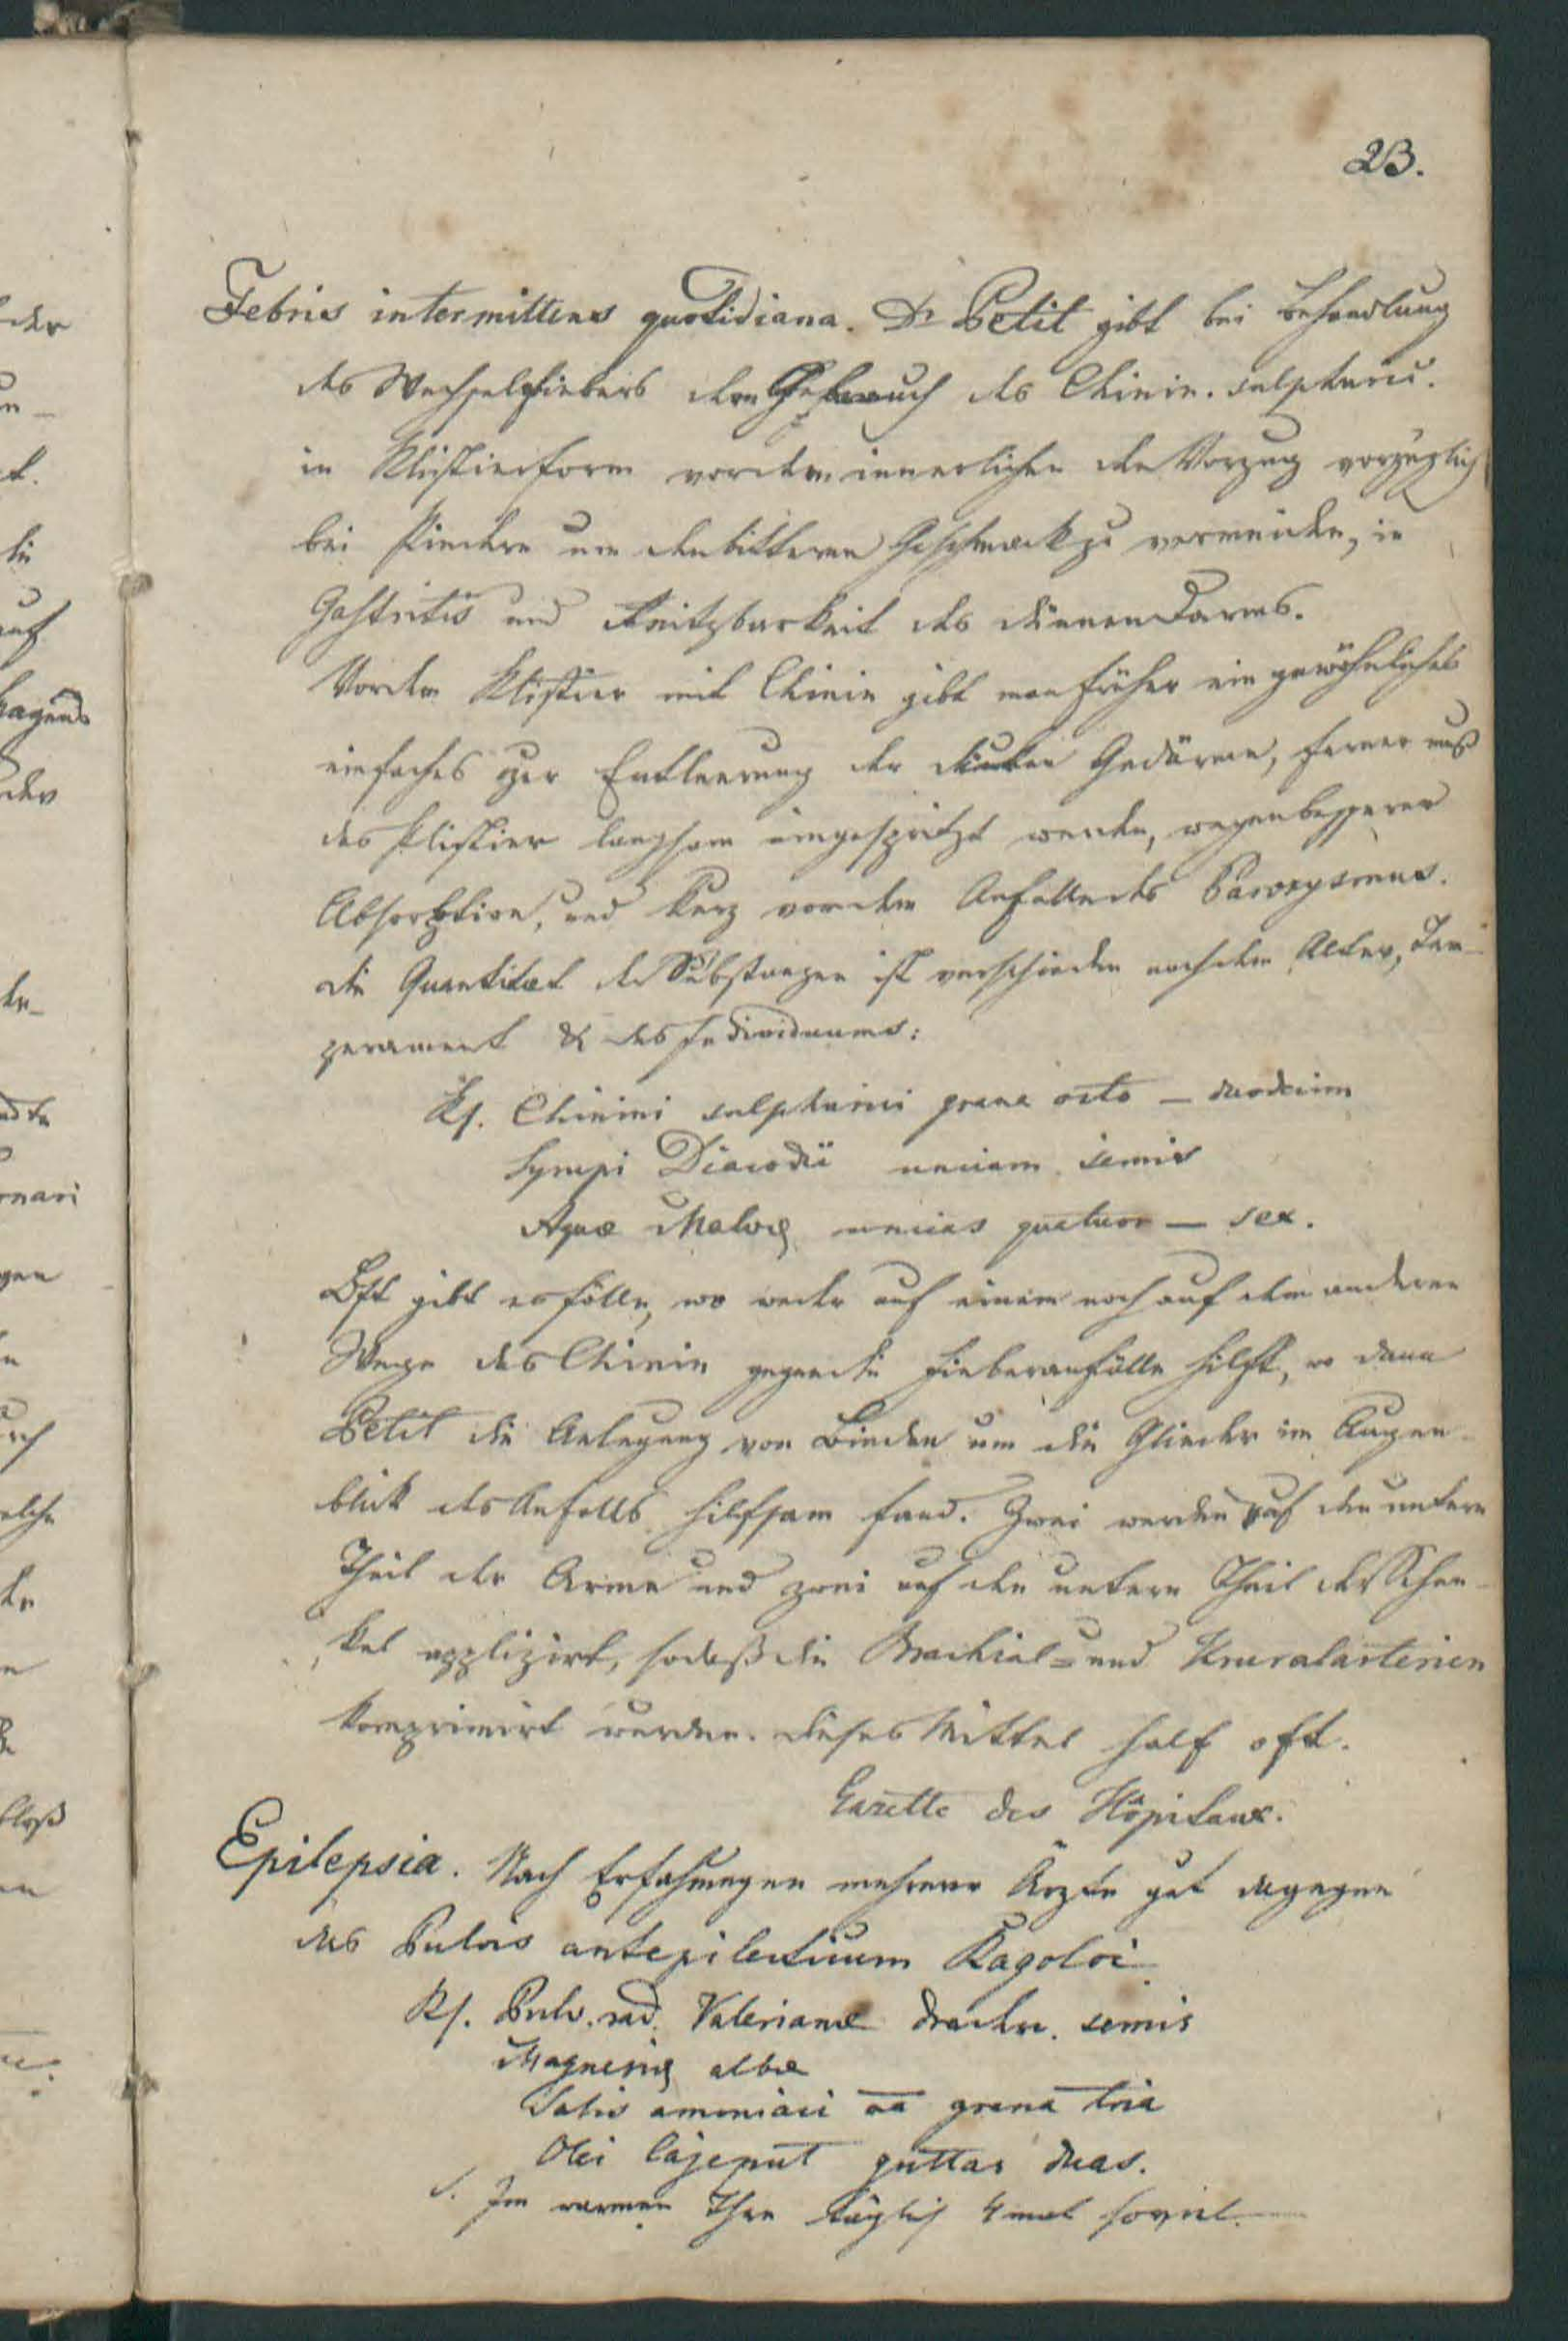 23.
Febris intermittens quotidiana. Dr Petit gibt bei Behandlung
des Wechselfiebers dem Gebrauch des Chinin. sulphuric.
in Klistierform vor dem innerlichen den Vorzug vorzüglich
bei Kindern um den bitteren Geschmack zu vermeiden, in
Gastritis und Reitzbarkeit des dünnen Darms.
Vor dem Klistier mit Chinin gibt man früher ein gewöhnliches
einfaches zur Entleerung der dicken Gedärme, ferner muß
das Klistier langsam eingespritzt werden, wegen besserer
Absorbtion, und kurz vor dem Anfalle des Paroxysmus.
die Quantitæt der Substanzen ist verschieden nach dem Alter, Tem-
perament & des Individuums:
Rf. Chinini sulphurici grana octo — duodecim
Syrupi Diacodii unciam semis
Aquæ Malvæ uncias quatuor — sex.
Oft gibt es Fälle, wo weder auf einem noch auf dem anderen
Wege das Chinin gegen die Fieberanfälle hilft, wo dann
Petit die Anlegung von Binden um die Glieder im Augen-
blick des Anfalls hilfsam fand. Zwei werden auf den untern
Theil der Arme und zwei auf den untern Theil der Schen-
kel applizirt, sodaß die Brachial- und Kruralarterien
komprimirt werden. dieses Mittel half oft.
Gazette des Hôpitaux.
Epilepsia. Nach Erfahrungen mehrerer Ärzte gut dagegen
das Pulvis antepilecticum Ragoloi
Rf. Pulv. rad. Valerianæ drachm. semis
Magnesiæ albæ
Salis ammoniaci aa grana tria
Olei Cajeput guttas duas.
S. Im warmen Thee täglich 4 mal soviel.